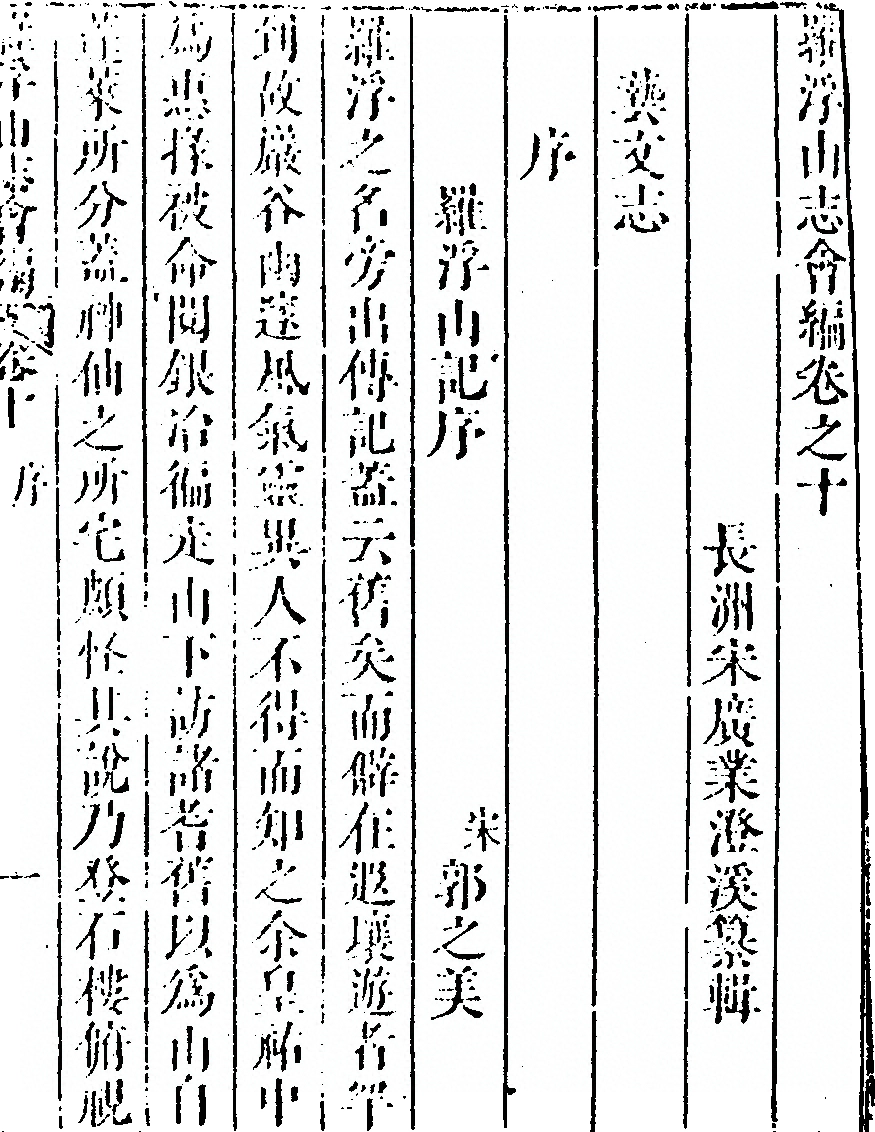 羅浮山志會編卷之十
長洲宋廣業澄溪纂輯
藝文志
序
羅浮山記序
宋郭之美
羅浮之名旁出傳記蓋云舊矣而僻在遐壤遊者罕
到故巖谷幽邃風氣靈異人不得而知之余皇祐中
為惠掾被命閱銀冶徧走山下訪諸耆舊以為山自
蓬萊所分蓋神仙之所宅頗怪其說乃登石樓俯視
羅浮山志會編 卷十 序 一